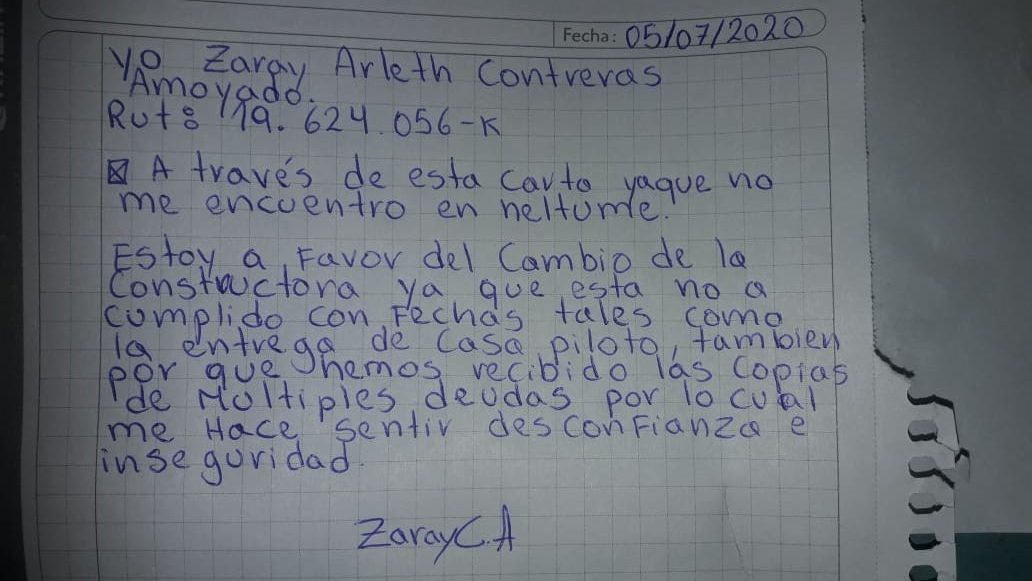 Fecha: 05/07/2020
Yo Zaray Arleth Contreras
Amoyado.
Rut: 19.624.056-K
A través de esta carta yaque no
me encuentro en neltume.
Estoy a Favor del Cambio de la
Constructora ya que esta no a
cumplido con Fechas tales como
la entrega de Casa piloto, tambien
por que hemos recibido las Copias
de Multiples deudas por lo cual
me Hace sentir desconFianza e
inseguridad.
Zaray C.A